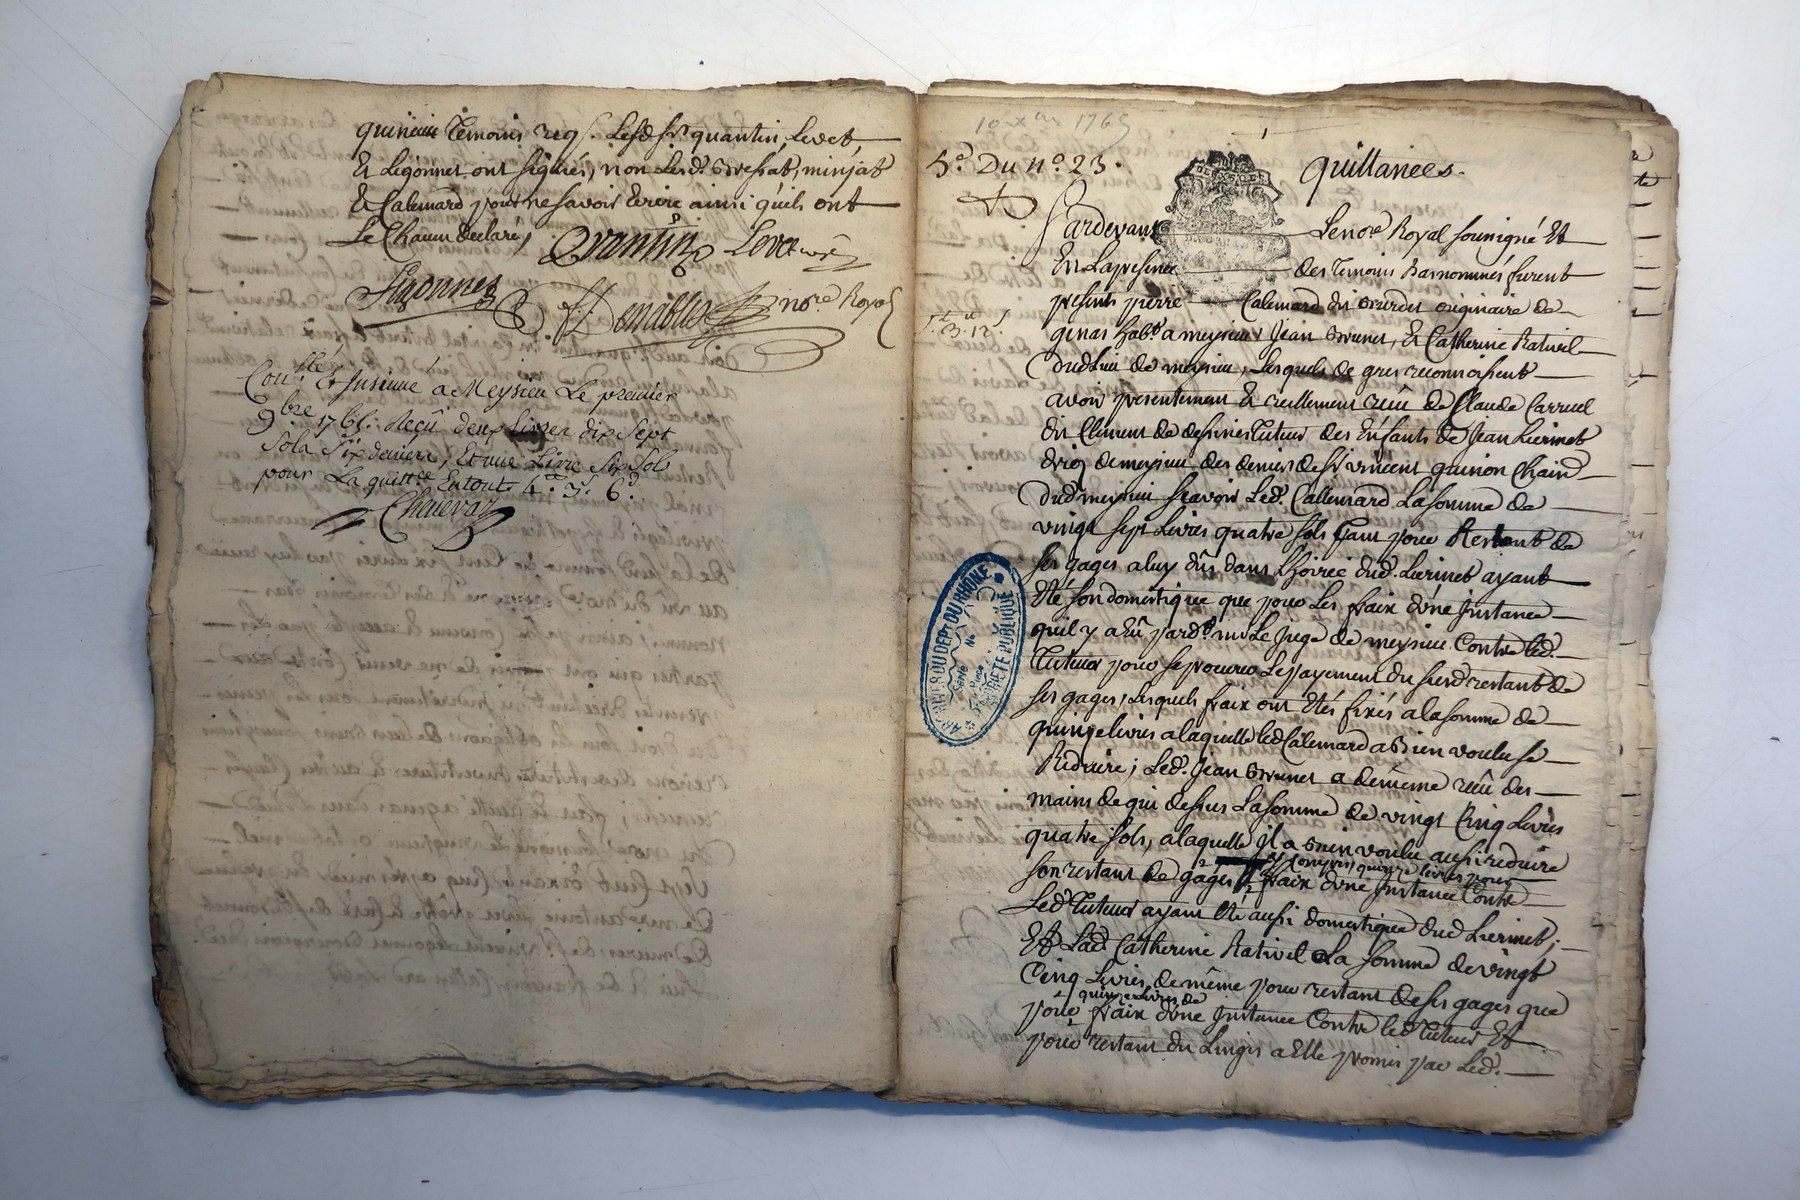 temoins req. Lesd. Srs quantin, Levet,
Et Ligonnet ont signés, non Lesd. minjat
Et Calemard pour ne savoir Ecrire ainsi qu'ils ont
declaré,
Quantin Levet
Ligonnet Denablee nore Royal
Conllé Et Insinué a Meysieu Le premier
9bre 1765. Reçû deux Livres dix sept
sols six deniers, Et une Livre six sols
pour La quittce En tout 4tt. 3s. 6d.
Chenevaz
10 xbre 1765
1
5e. Du no. 23.
quittances.
Pardevant Le nore Royal soussigné Et
En La presence des temoins Basnommés furent
presents pierre Calemard dit Bourdet originaire de
genas habt. a meysieu, Jean Brunet, Et Catherine Rativel
dud. Lieu de meysieu, Lesquels de gres reconnoissent
avoir presentement Et reellement reçu de Claude Carruel
dit Climent de dessines tuteur des Enfants de Jean Liermet
de meysieu des deniers de Sr vincent quinion
dud. meysieu scavoir Led. Callemard La somme de
vingt sept Livres quatre sols tant pour Restant de
ses gages a luy dûs dans L'hoirie dud. Liermet ayant
Eté son domestique que pour Les fraix d'une Instance
qu'il y a Eû pard. mr Le Juge de meysieu Contre Led.
tuteur pour se procurer Le payement du susd. restant de
ses gages, Lesquels fraix ont Etés fixés a la somme de
quinze livres a laquelle led. Calemard a Bien voulu se
Reduire; Led. Jean Brunet a de même reçû des
mains de qui dessus La somme de vingt Cinq Livres
quatre sols, a laquelle il a Bien voulu aussi reduire
y compris quinze livres pour
son restant de gages fraix d'une Instance Contre
Led. tuteur ayant Eté aussi domestique dud. Liermet;
Et Lad. Catherine Rativel La somme de vingt
Cinq Livres, de même pour restant de ses gages que
quinze Livres de
pour fraix d'une Instance Contre led. tuteur Et
pour restant du Linge a Elle promis par Led.
ARCHIVES DU DEPT. DU RHONE
Série
No
PROPRIETE PUBLIQUE